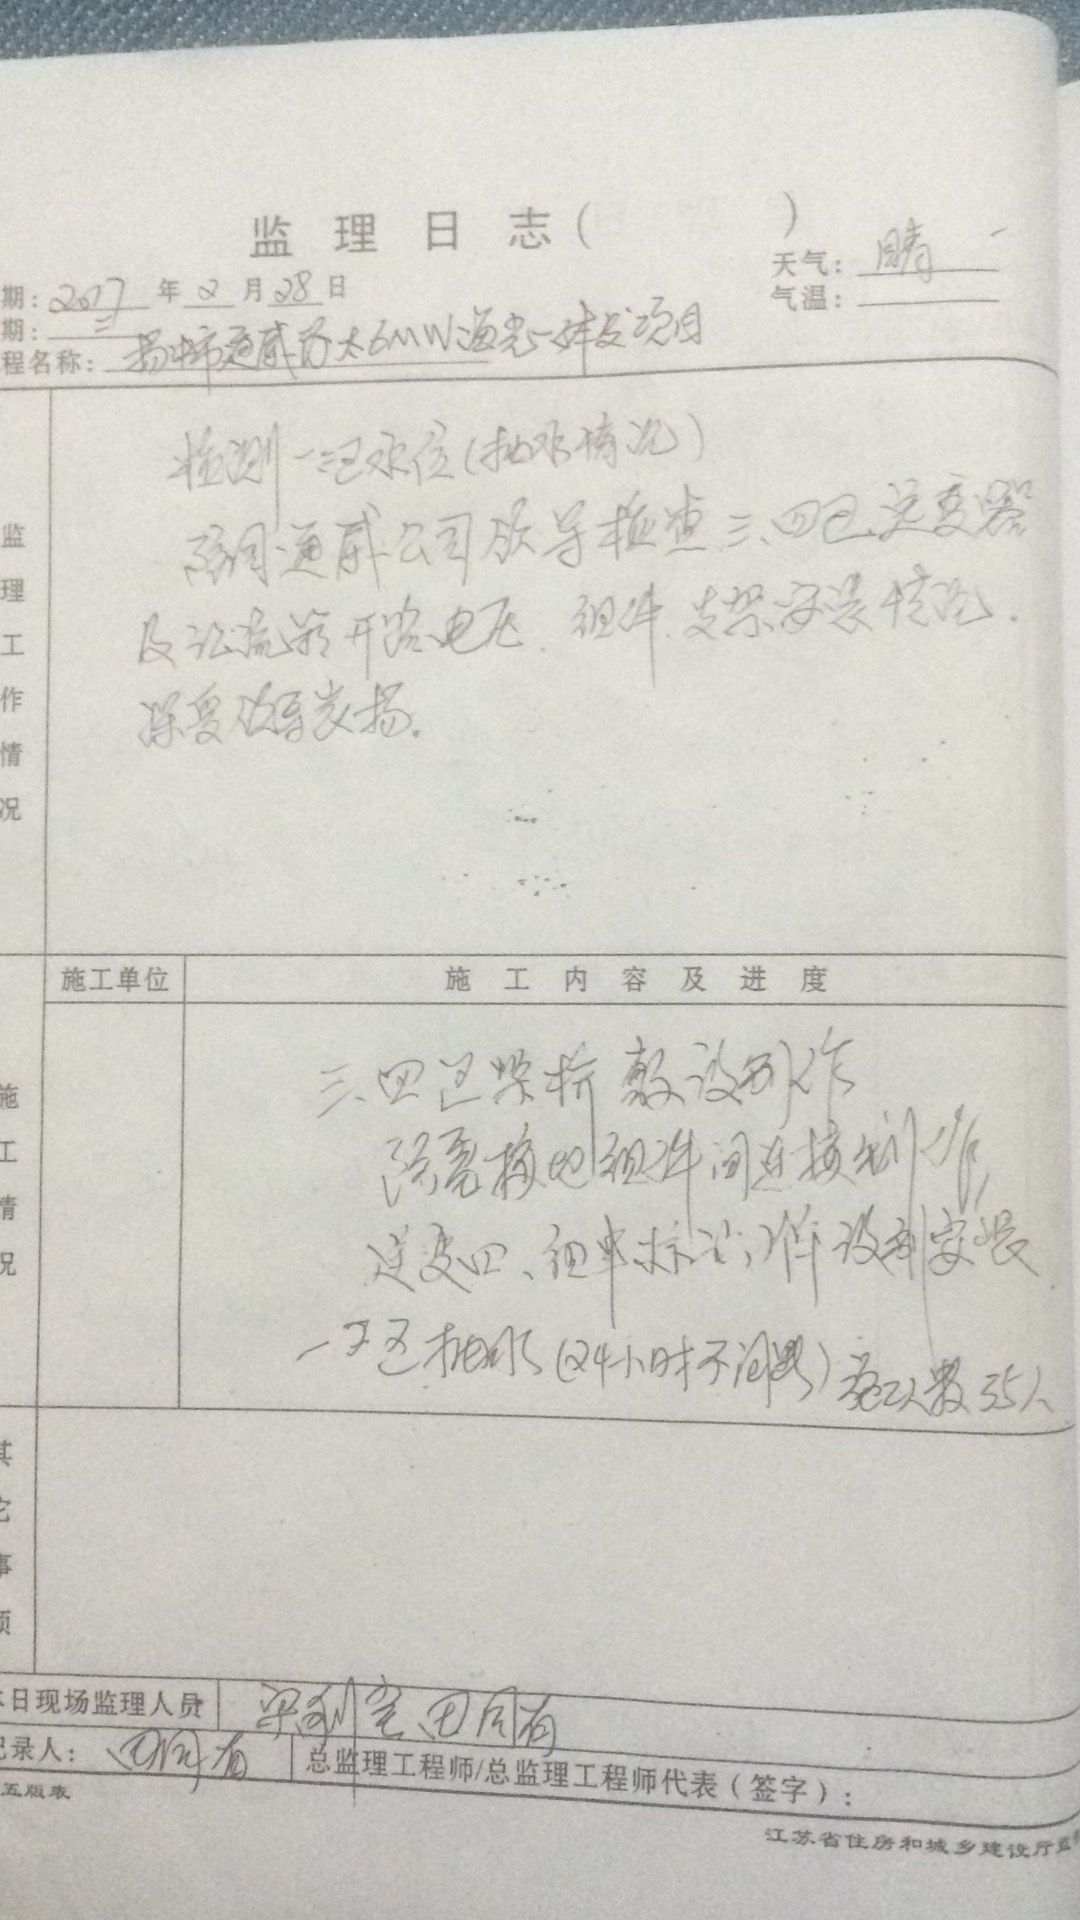 监理日志（ ）
天气：晴
期：2017年2月28日
气温：
期：二
程名称：扬中市通威 6MW渔光一体 项目
监理工作情况
检测一区水位(抽水情况)
陪同通威公司领导检查三、四区逆变器
及汇流箱开路电压、组件、支架安装情况.
深受领导表扬.
施工单位
施工内容及进度
施工情况
三、四区架桥敷设 作
接地组件间连接制作
组串标识 安装
一 区抽水(24小时不间断) 施工人数35人
其它事项
本日现场监理人员
田同有
记录人：田同有
总监理工程师/总监理工程师代表（签字）：
五版表
江苏省住房和城乡建设厅监